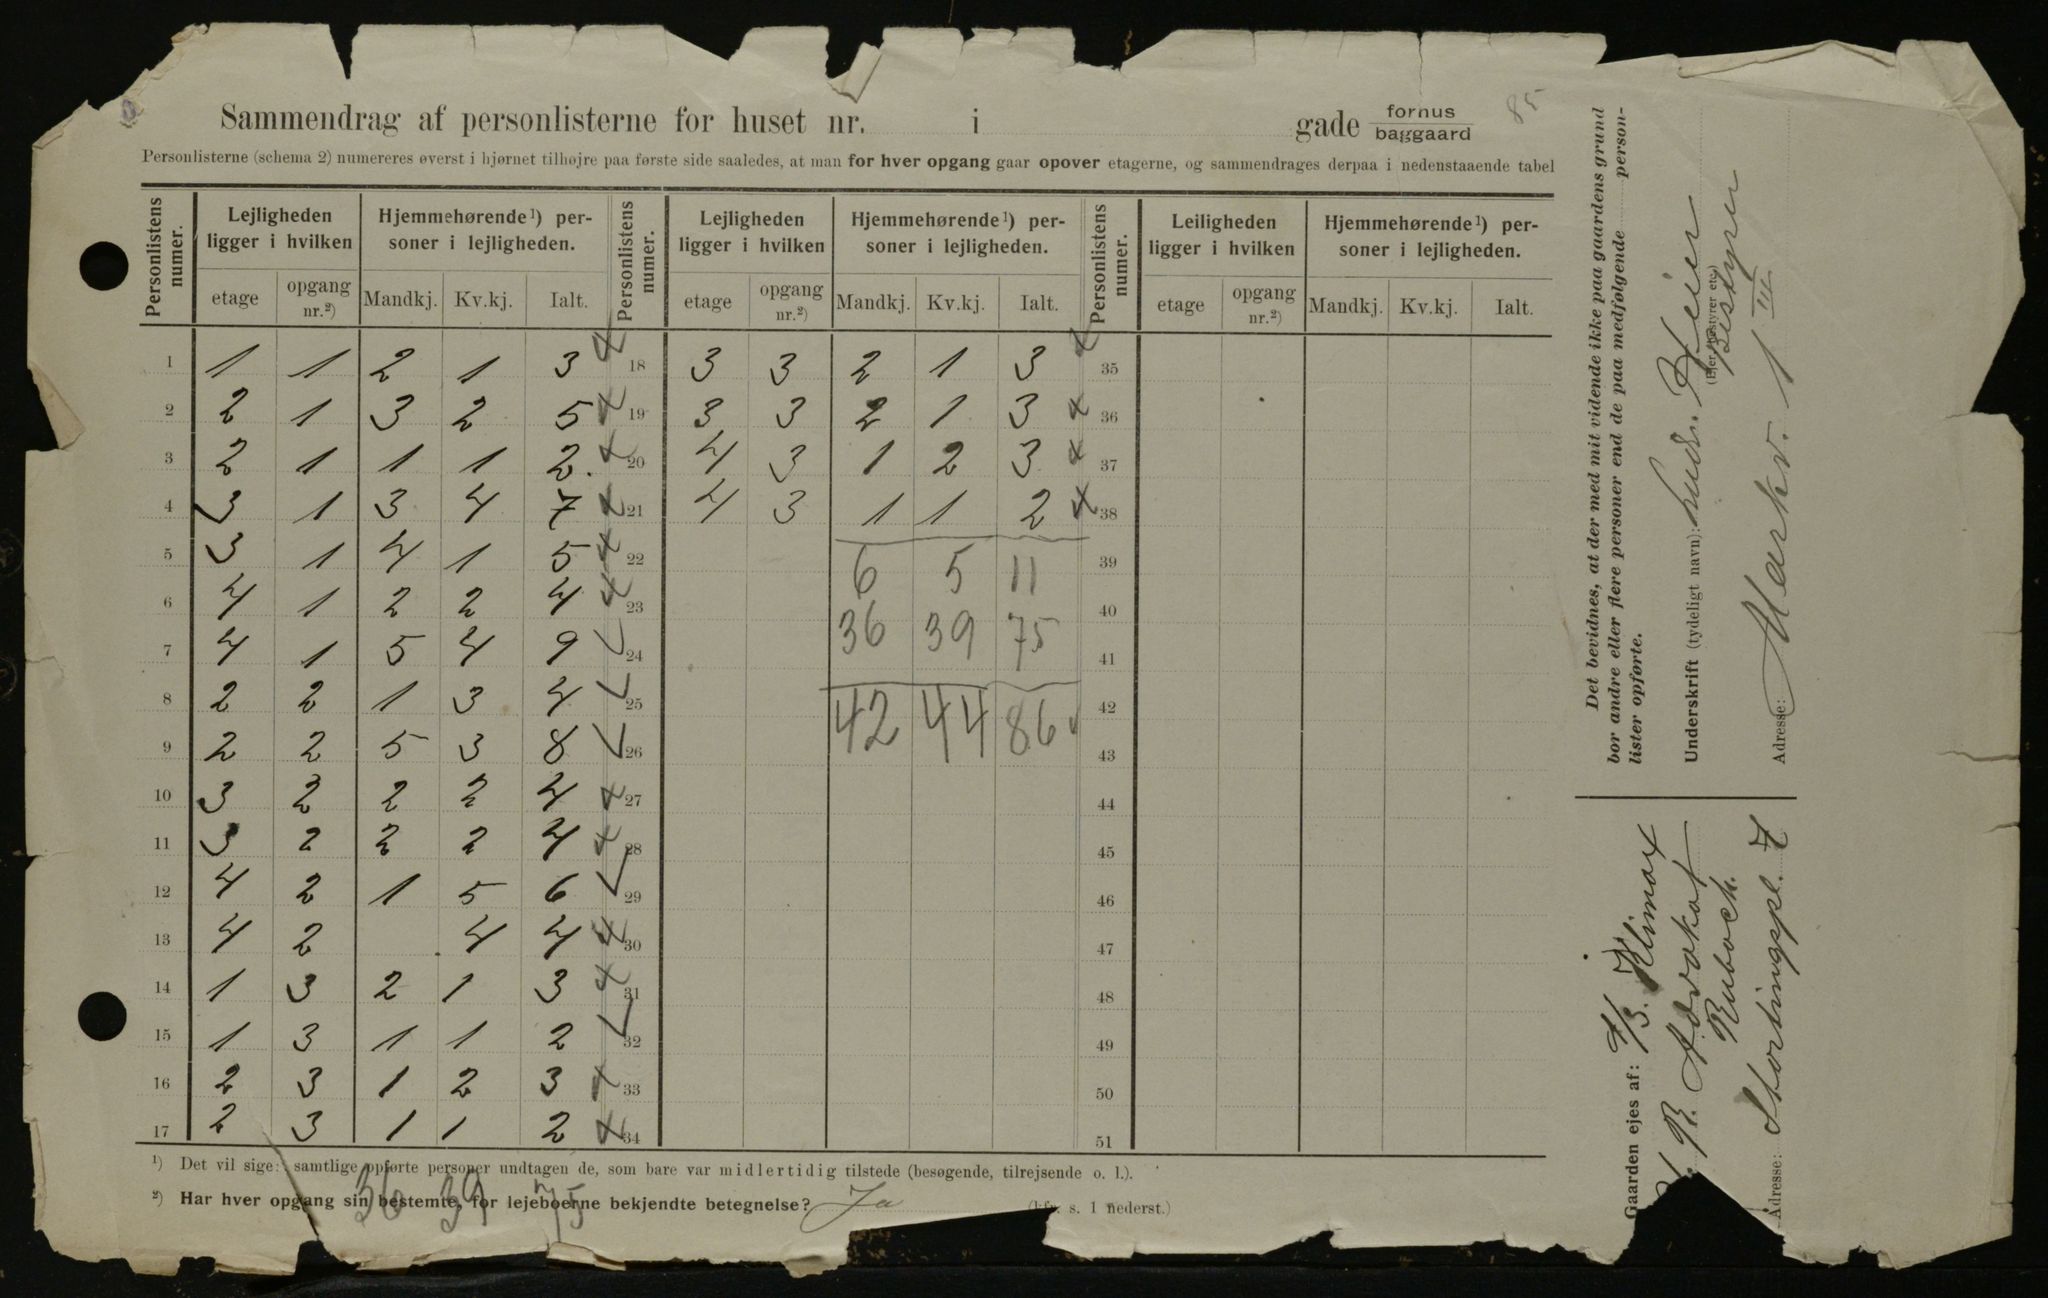 85
Sammendrag af personlisterne for huset nr. i gade fornus baggaard
Personlisterne (schema 2) numereres øverst i hjørnet tilhøjre paa første side saaledes, at man for hver opgang gaar opover etagerne, og sammendrages derpaa i nedenstaaende tabel
Personlistens numer. Lejligheden ligger i hvilken Hjemmehørende ¹) personer i lejligheden. Personlistens numer. Lejligheden ligger i hvilken Hjemmehørende ¹) personer i lejligheden. Personlistens numer. Leiligheden ligger i hvilken Hjemmehørende ¹) personer i lejligheden.
etage opgang nr.²) Mandkj. Kv.kj. Ialt. etage opgang nr.²) Mandkj. Kv.kj. Ialt. etage opgang nr.²) Mandkj. Kv.kj. Ialt.
1 1 1 2 1 3 18 3 3 2 1 3 35
2 2 1 3 2 5 19 3 3 2 1 3 36
3 2 1 1 1 2 20 4 3 1 2 3 37
4 3 1 3 4 7 21 4 3 1 1 2 38
5 3 1 4 1 5 22 6 5 11 39
6 4 1 2 2 4 23 36 39 75 40
7 4 1 5 4 9 24 41
8 2 2 1 3 4 25 42 44 86 42
9 2 2 5 3 8 26 43
10 3 2 2 2 4 27 44
11 3 2 2 2 4 28 45
12 4 2 1 5 6 29 46
13 4 2 4 4 30 47
14 1 3 2 1 3 31 48
15 1 3 1 1 2 32 49
16 2 3 1 2 3 33 50
17 2 3 1 1 2 34 51
¹) Det vil sige: samtlige opførte personer undtagen de, som bare var midlertidig tilstede (besøgende, tilrejsende o. l.).
²) Har hver opgang sin bestemte, for lejeboerne bekjendte betegnelse? Ja s. 1 nederst.)
36 39 75
Det bevidnes, at der med mit vidende ikke paa gaardens grund
bor andre eller flere personer end de paa medfølgende person-
lister opførte.
Underskrift (tydeligt navn): Ludv. Heier
(Ejer, bestyrer etc.)
Bestyrer
Adresse: Markv. 1 III
Gaarden ejes af: A/B. Klimax
Advokat
Rubach.
Adresse: Stortingspl. 7